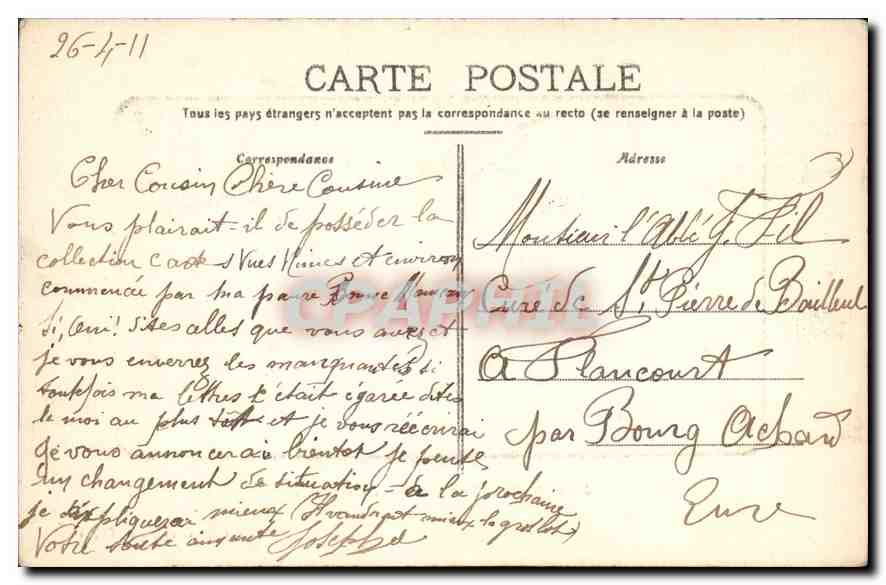 26-4-11
CARTE POSTALE
Tous les pays étrangers n'acceptent pas la correspondance au recto (se renseigner à la poste)
Correspondance
Cher Cousin Chère Cousine
Vous plairait-il de posséder la
collection cartes Vues Nimes et environ
commencée par ma pauvre Bonne Maman
si, Oui! dites celles que vous avez et
je vous enverrez les manquantes si
toutefois ma lettre s'était égarée dites
le moi au plus tôt et je vous réécrirai
Je vous annoncerai bientôt je pense
un changement de situation - à la prochaine
je expliquerai mieux (Il vaudrait mieux le gros lot)
Votre toute aimante
Adresse
Monsieur l'Abbé J. Pil
Curé de St Pierre de Bailleul
A Flancourt
par Bourg Achard
Eure
CPAPHIL